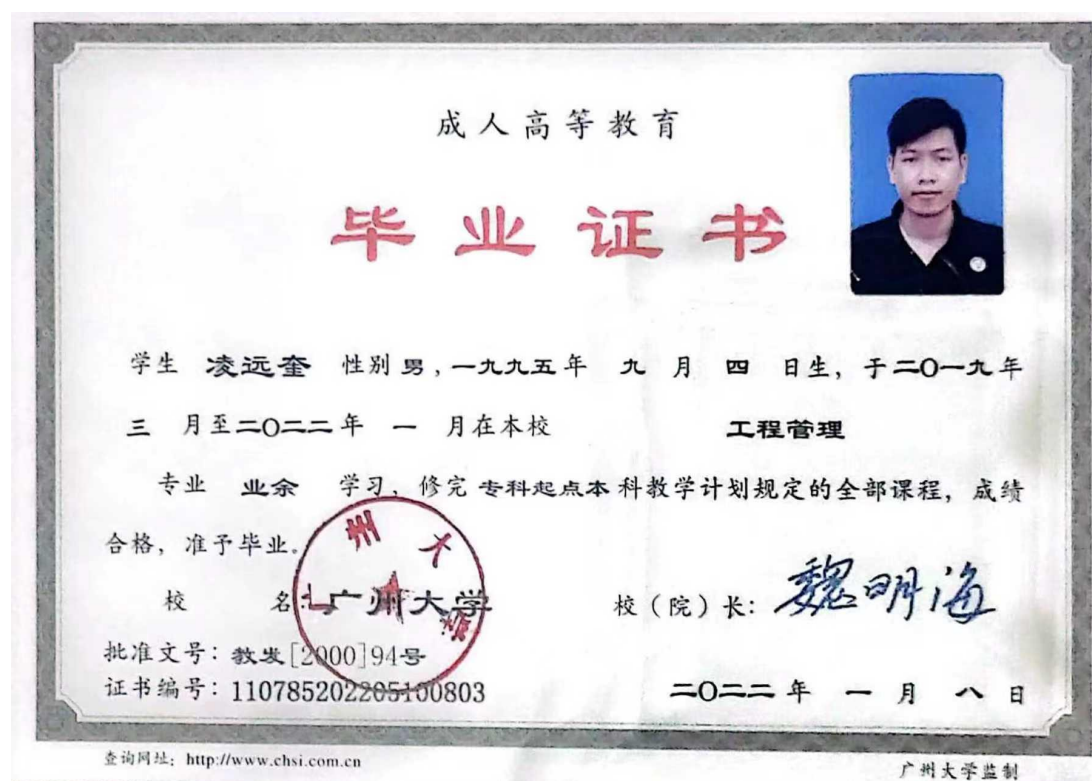 成人高等教育
毕业证书
学生 凌远奎 性别 男，一九九五年 九 月 四 日生，于二〇一九年
三 月至二〇二二年 一 月在本校 工程管理
专业 业余 学习，修完 专科起点本 科教学计划规定的全部课程，成绩
合格，准予毕业。
校 名：广州大学
校（院）长：魏明海
批准文号：教发[2000]94号
证书编号：110785202205100803
二〇二二 年 一 月 八 日
查询网址：http://www.chsi.com.cn
广州大学监制